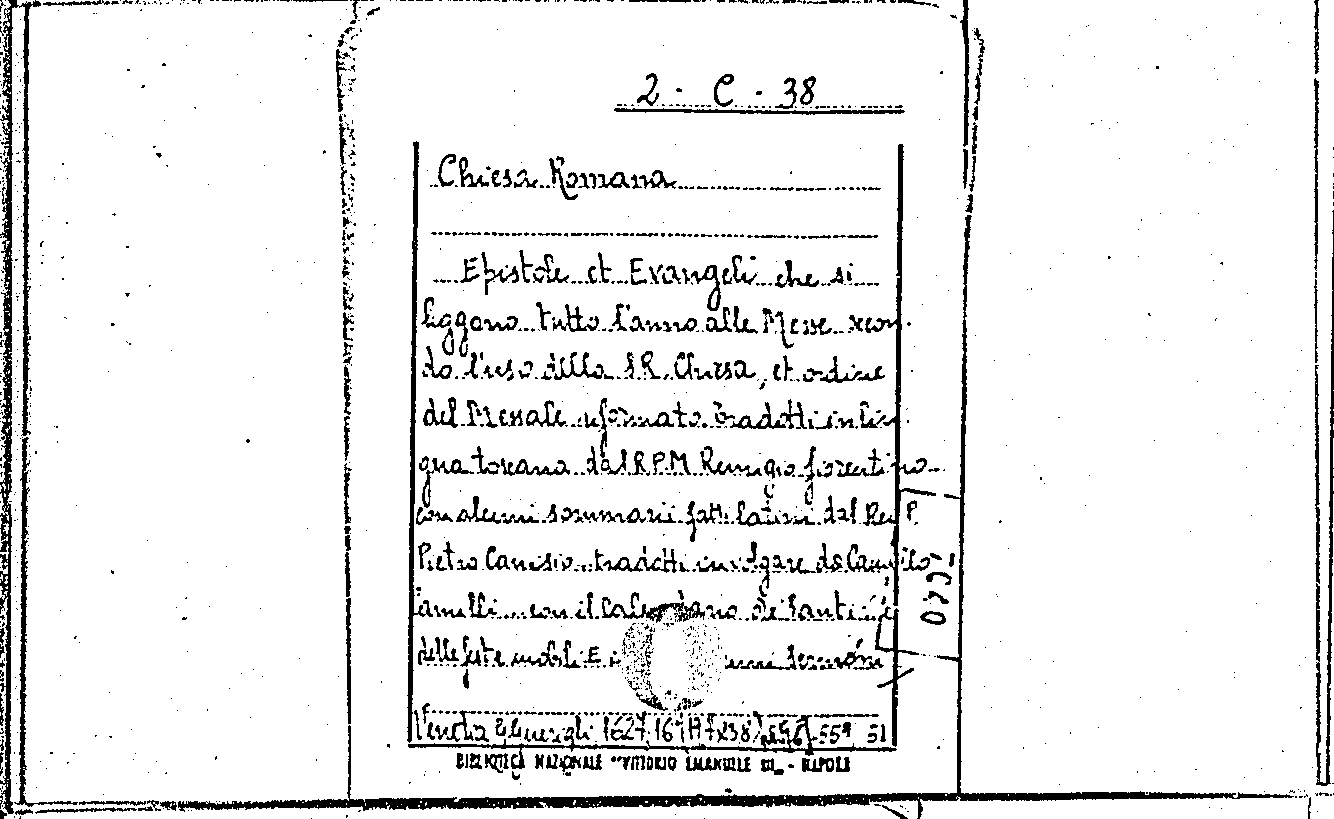 2 - C - 38
Chiesa Romana
Epistole et Evangeli che si
leggono tutto l'anno alle Messe secon-
do l'uso della S.R. Chiesa, et ordine
del Messale riformato tradotti in lin
gua toscana dal R.P.M. Remigio fiorentino
con alcuni sommarii fatti latini dal Rev P.
Pietro Canisio tradotti in volgare da Camillo
Camilli con il Calendario de Santi e
delle feste mobili E sermoni
Venetia Guerigli 1627 16°
BIBLIOTECA NAZIONALE "VITTORIO EMANUELE III" - NAPOLI